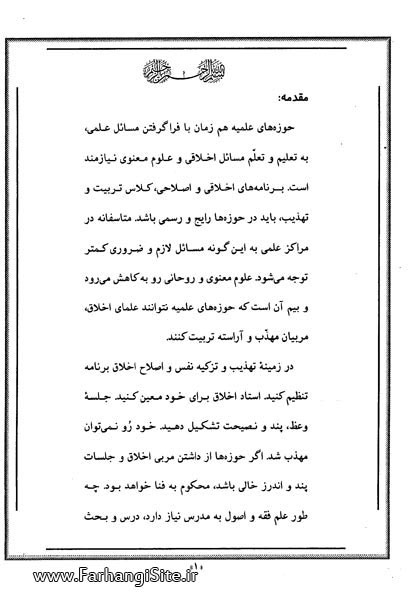 بسم الله الرحمن الرحیم
مقدمه:
حوزه‌های علمیه هم زمان با فراگرفتن مسائل علمی،
به تعلیم و تعلّم مسائل اخلاقی و علوم معنوی نیازمند
است. برنامه‌های اخلاقی و اصلاحی، کلاس تربیت و
تهذیب، باید در حوزه‌ها رایج و رسمی باشد. متاسفانه در
مراکز علمی به این گونه مسائل لازم و ضروری کمتر
توجه می‌شود. علوم معنوی و روحانی رو به کاهش می‌رود
و بیم آن است که حوزه‌های علمیه نتوانند علمای اخلاق،
مربیان مهذّب و آراسته تربیت کنند.
در زمینهٔ تهذیب و تزکیه نفس و اصلاح اخلاق برنامه
تنظیم کنید. استاد اخلاق برای خود معین کنید. جلسهٔ
وعظ، پند و نصیحت تشکیل دهید. خود رُو نمی‌توان
مهذب شد. اگر حوزه‌ها از داشتن مربی اخلاق و جلسات
پند و اندرز خالی باشد، محکوم به فنا خواهد بود. چه
طور علم فقه و اصول به مدرس نیاز دارد، درس و بحث
«۱»
www.FarhangiSite.ir